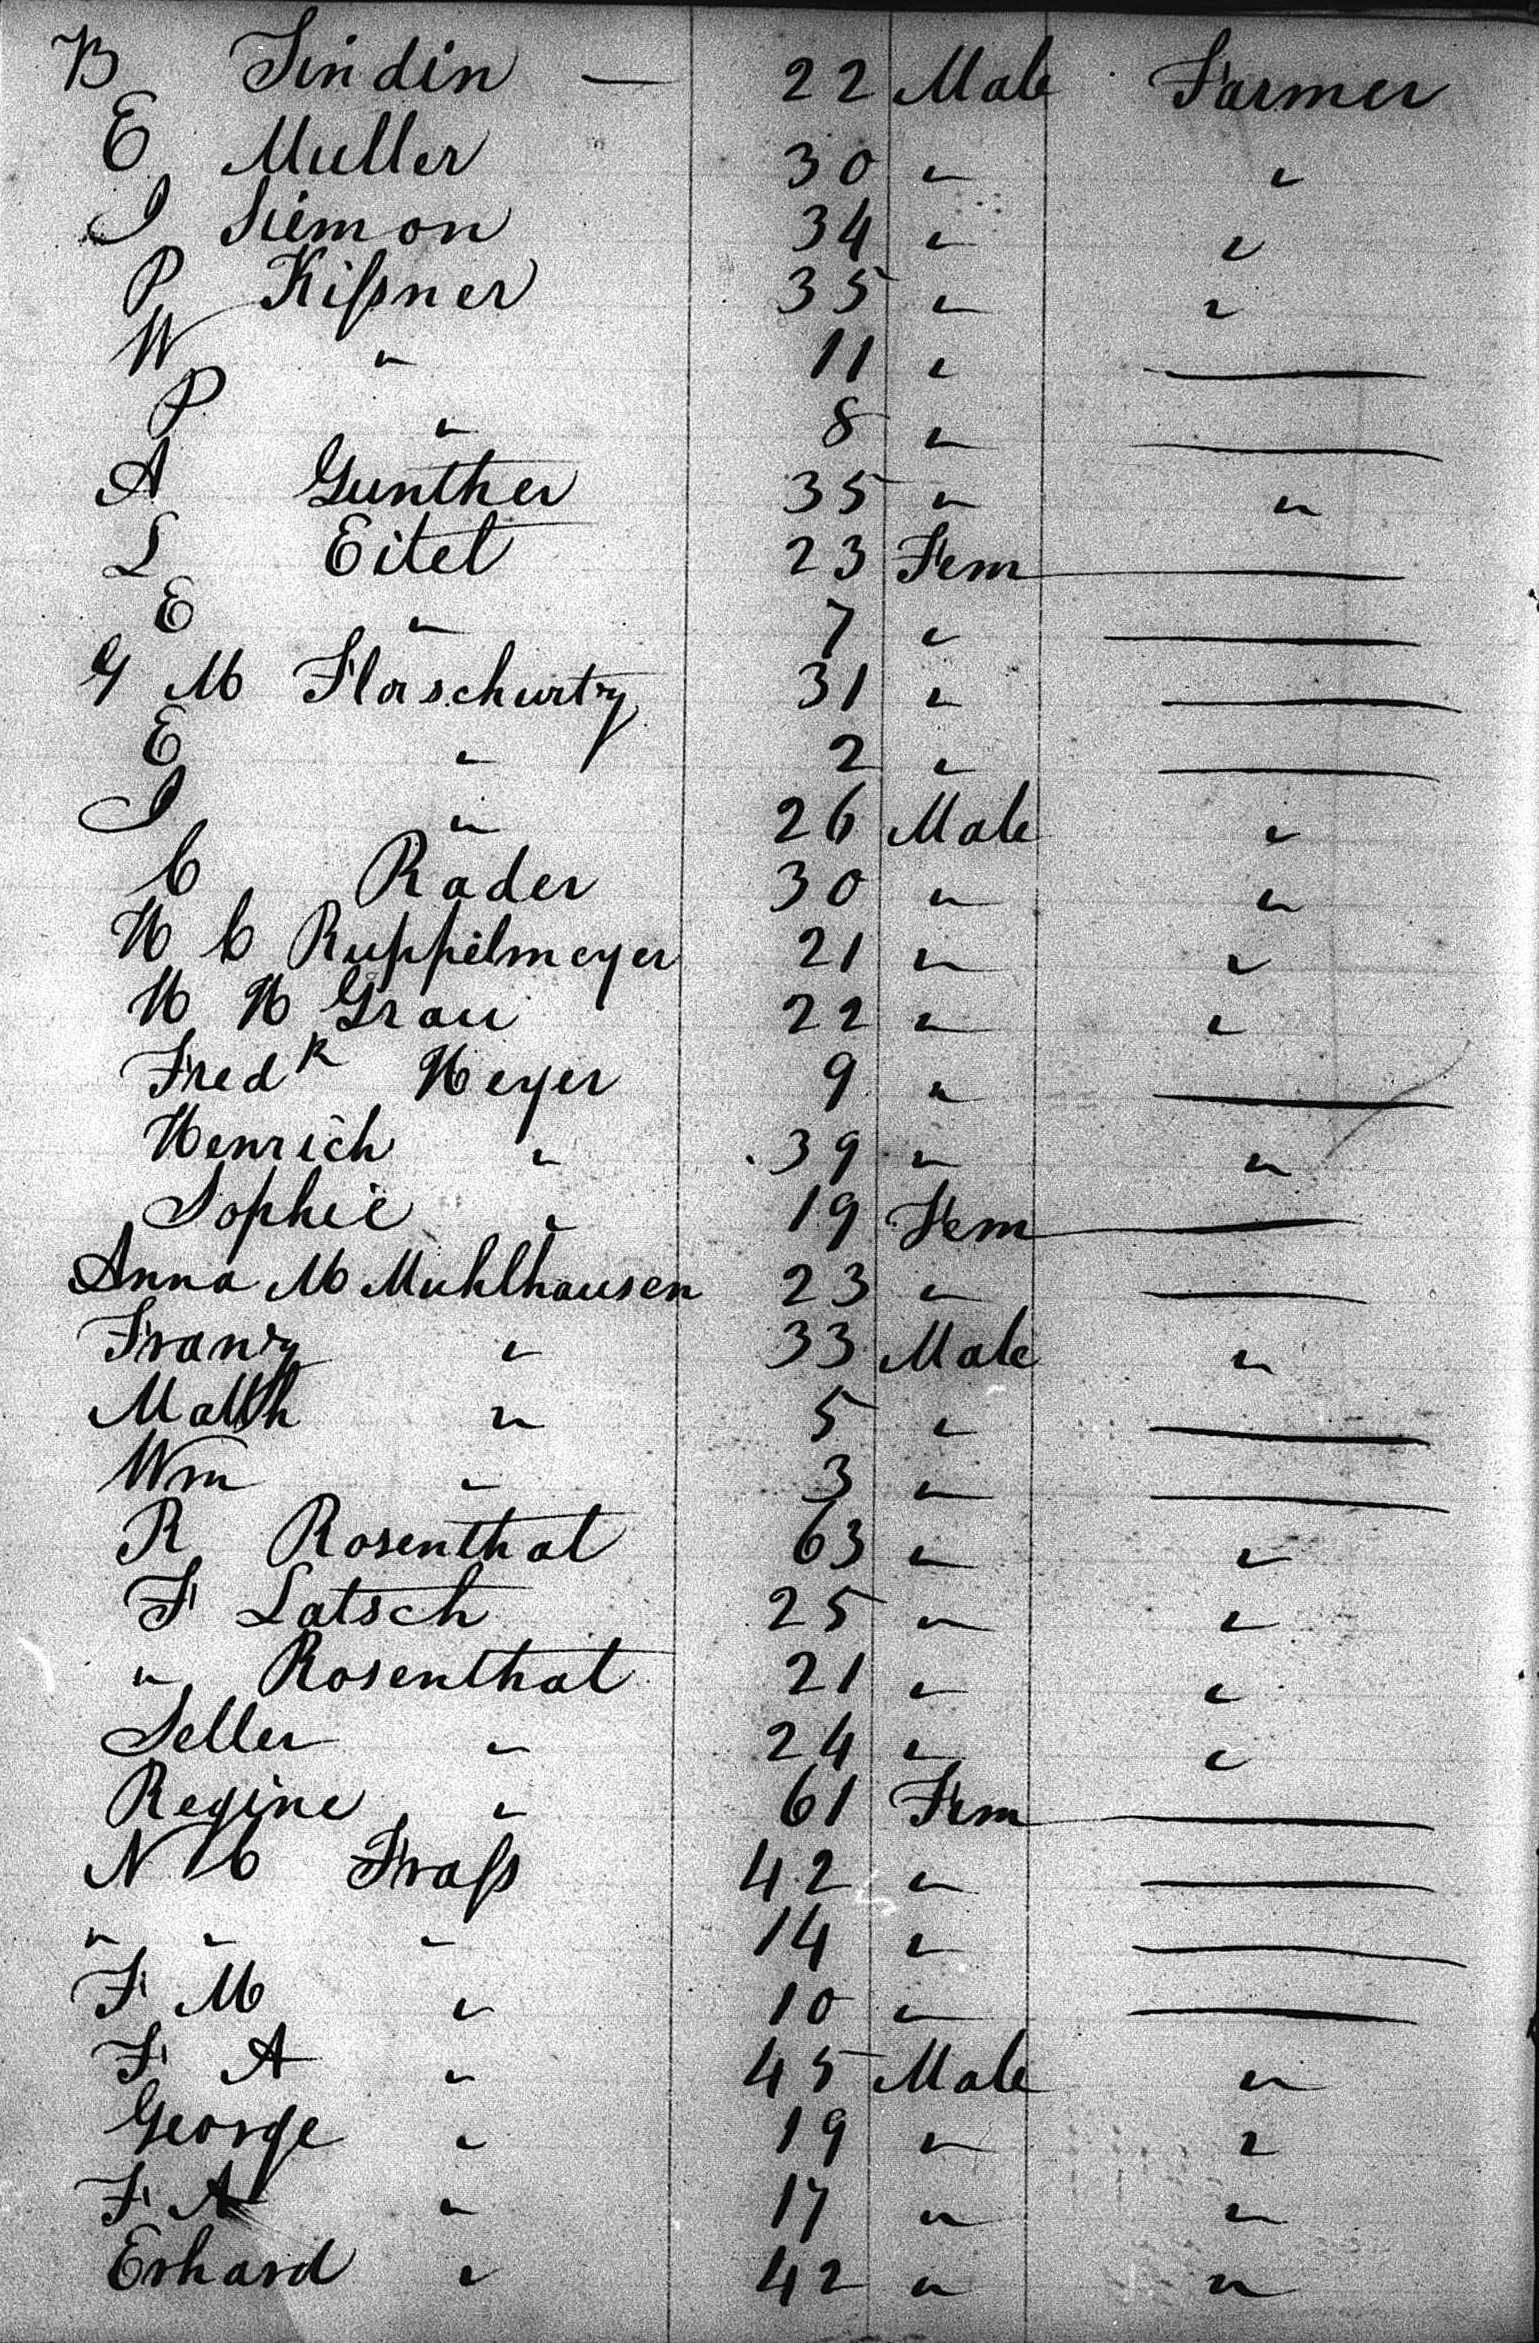 B Sindin — 22 Male Farmer
E Muller 30 " "
J Siemon 34 " "
P Kißner 35 " "
W " 11 " —
P " 8 " —
A Gunther 35 " "
L Eitel 23 Fem —
E " 7 " —
G M Florschurtz 31 " —
E " 2 " —
J " 26 Male "
C Rader 30 " "
H C Ruppelmeyer 21 " "
H H Grau 22 " "
Fredk Heyer 9 " —
Henrich " 39 " "
Sophie " 19 Fem —
Anna M Muhlhausen 23 " —
Franz " 33 Male "
Math " 5 " —
Wm " 3 " —
R Rosenthal 63 " "
F Latsch 25 " "
" Rosenthal 21 " "
Seller " 24 " "
Regine " 61 Fem —
N C Fraß 42 " —
" " " 14 " —
F M " 10 " —
F A " 45 Male "
George " 19 " "
F A " 17 " "
Erhard " 42 " "